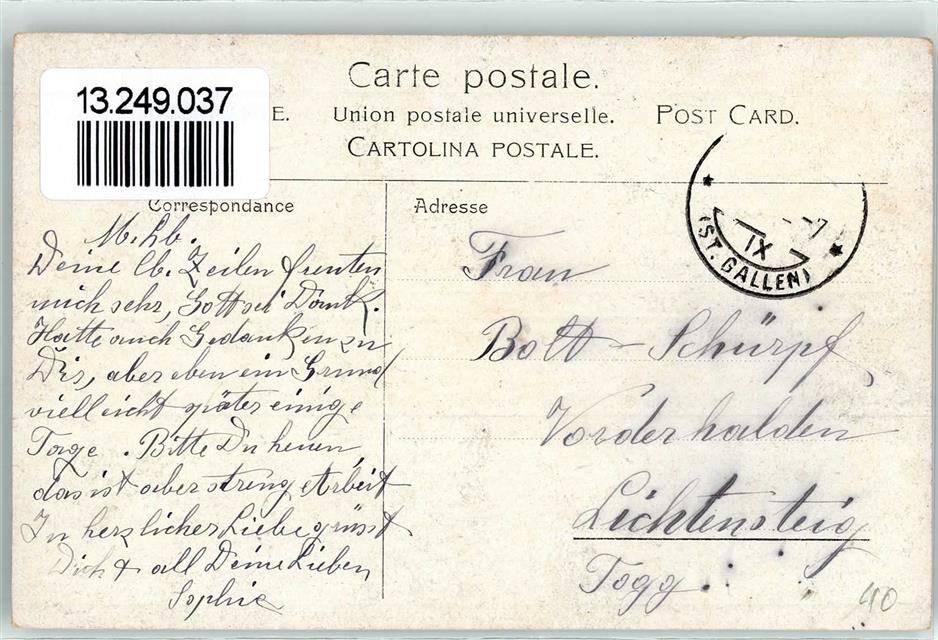 13.249.037
Carte postale.
E. Union postale universelle. POST CARD.
CARTOLINA POSTALE.
Correspondance
Adresse
M. Lb.
Deine lb. Zeilen freuten
mich sehr, Gott sei Dank.
Hatte auch Gedanken zu
Dir, aber eben ein
vielleicht später einige
Tage. Bitte Du heuen,
das ist aber streng Arbeit
In herzlicher Liebe grüsst
Dich & all Deine Lieben
Sophie
Frau
Bolt-Schürpf,
Vorderhalden
Lichtensteig
Togg.
IX 7
(ST. GALLEN)
40